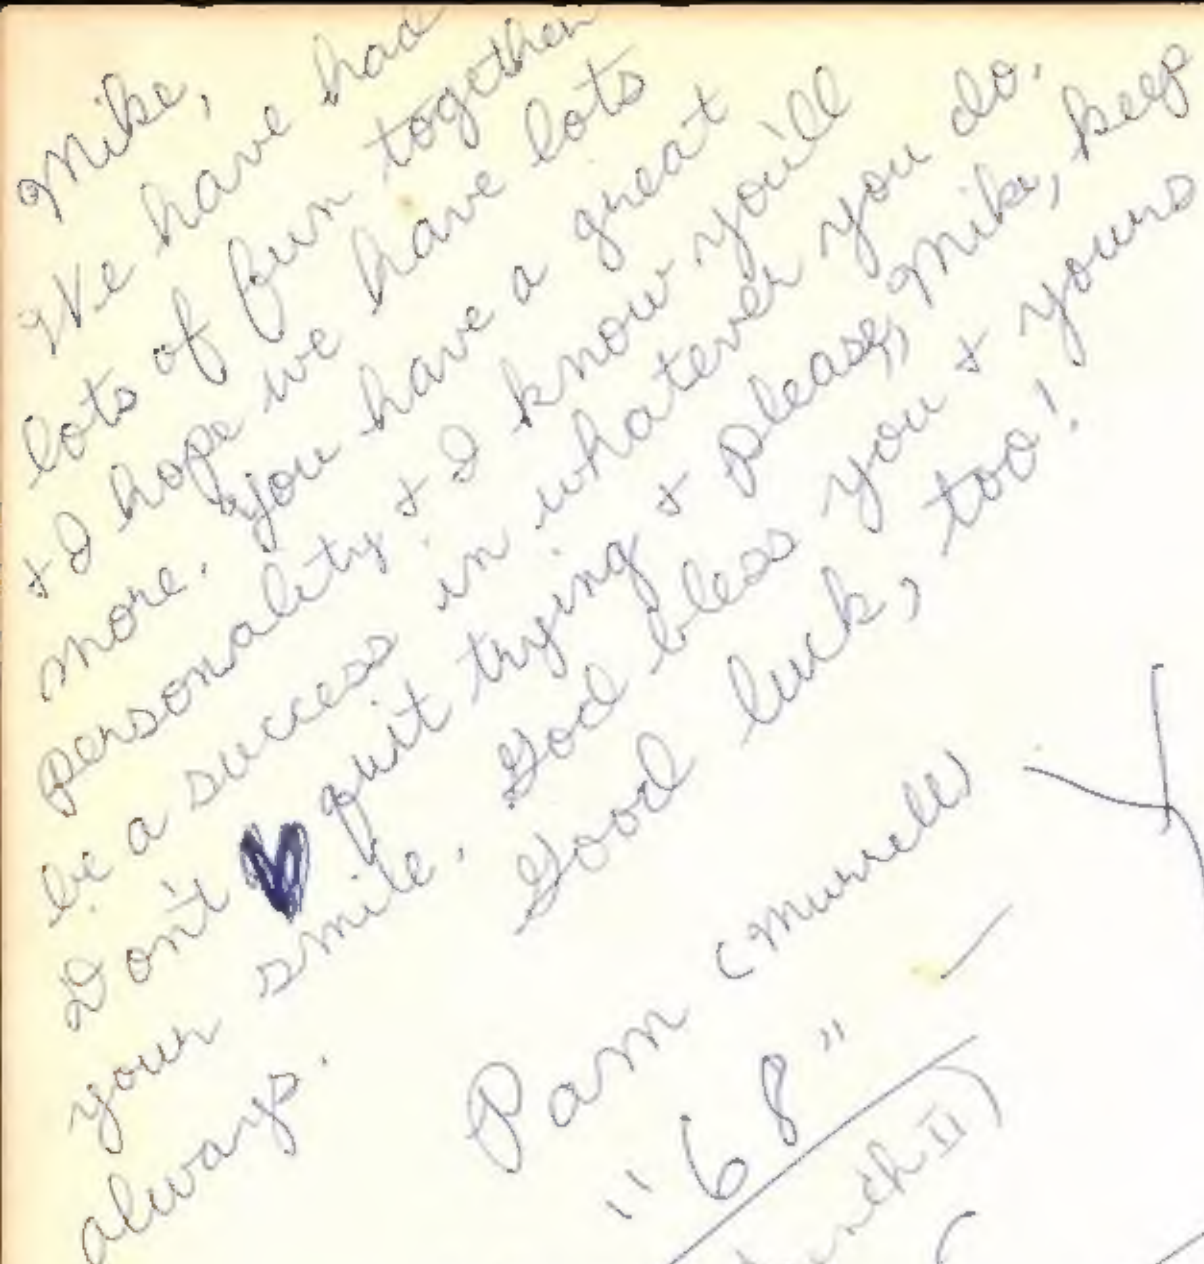 Mike,
We have had
lots of fun together
+ I hope we have lots
more. You have a great
personality + I know you'll
be a success in whatever you do.
Don't quit trying + please, Mike, keep
your smile. God bless you + yours
always. Good luck, too!
Pam (Murrell)
"68"